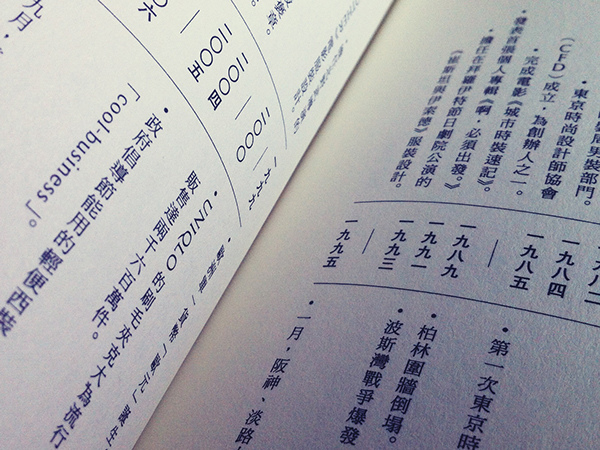 裝部門。
東京時尚設計師協會
(CFD)成立,為創辦人之一。
・完成電影《城市時裝速記》。
・發表首張個人專輯《啊,必須出發。》
・擔任在拜羅伊特節日劇院公演的
《崔斯坦與伊索德》服裝設計。
一九八四
一九八五
一九八九
一九九一
一九九三
一九九五
・第一次東京時
・柏林圍牆倒塌。
・波斯灣戰爭爆發
・一月,阪神、淡路
一九九九
二〇〇〇
二〇〇四
二〇〇五
〇六
・UNIQLO的刷毛夾克大為流行
販售達兩千六百萬件。
・政府倡導節能用的輕便西裝
「cool-business」。
九月,